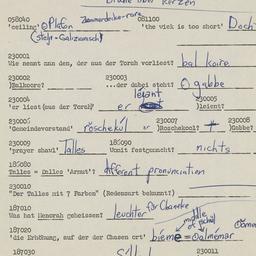 über Kerzen
058040 081100
'ceiling' Plafon 'the wick is too short' Doch
(steyr-Galizianisch)
230001
Wie nennt man den, der aus der Torah vorliest? bal koire
230002 230003
]Balkoore? ...der dabei steht? gabbe
230004 leient 230005
'er liest(aus der Torah)' er ]leient?
230006 230007 230008
'Gemeindevorstand' röschekül ]Roschekool? Gabbe?
230009 186090
'prayer shawl' Talles Womit festgemacht? nichts
186080
Talles = Dalles 'Armut'? different pronunciation
230010
"Der Talles mit 7 Farben" (Redensart bekannt?)
187010 für Chanuke
Was hat Menorah geheissen? leuchter
187020 middle of schul
'die Erhöhung, auf der der Chasen ort' bieme = Oalmemor
187030 230011